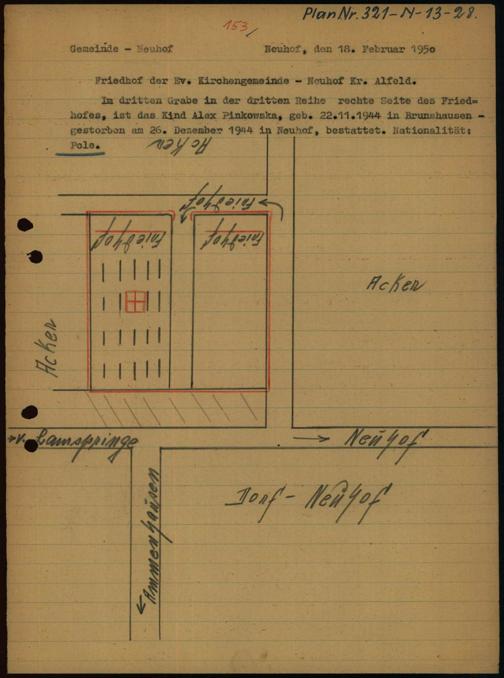 Plan Nr. 321-N-13-28.
153/
Gemeinde - Neuhof          Neuhof, den 18. Februar 1950
Friedhof der Ev. Kirchengemeinde - Neuhof Kr. Alfeld.
Im dritten Grabe in der dritten Reihe rechte Seite des Fried-
hofes, ist das Kind Alex Pinkowska, geb. 22.11.1944 in Brunshausen -
gestorben am 26. Dezember 1944 in Neuhof, bestattet. Nationalität:
Pole.
Acker
Friedhof
Friedhof
Friedhof
Acker
Acker
v. Lamspringe
Neuhof
Dorf - Neuhof
Ammenhausen